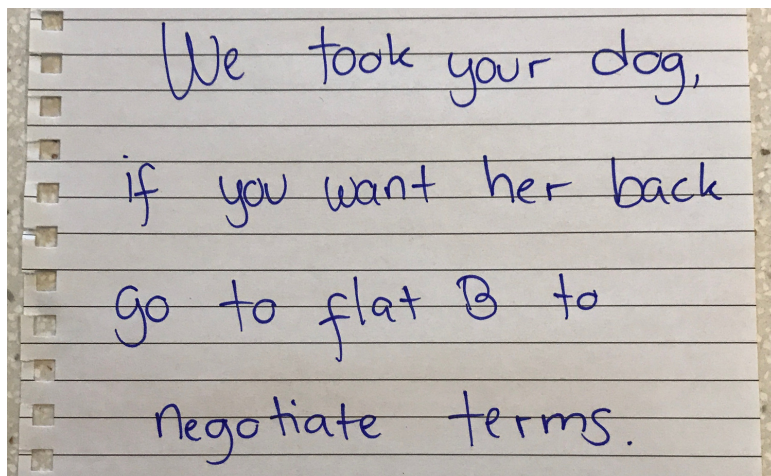 We took your dog,
if you want her back
go to flat B to
negotiate terms.